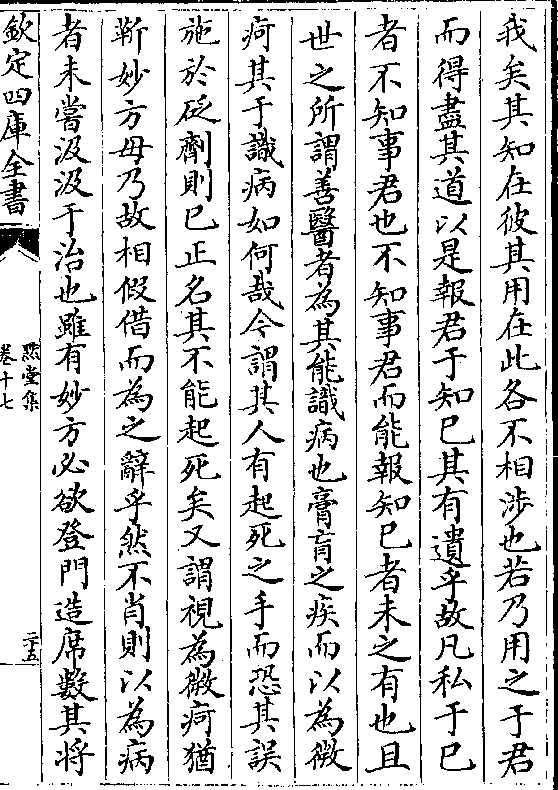 我矣其知在彼其用在此各不相涉也若乃用之于君
而得盡其道以是報君于知已其有遺乎故凡私于已
者不知事君也不知事君而能報知已者未之有也且
世之所謂善醫者為其能識病也膏肓之疾而以為微
疴其于識病如何哉今謂其人有起死之手而恐其誤
施於砭劑則已正名其不能起死矣又謂視為微疴猶
靳妙方毋乃故相假借而為之辭乎然不肖則以為病
者未嘗汲汲于治也雖有妙方必欲登門造席數其將
欽定四庫全書
熙堂集
卷十七
二十五